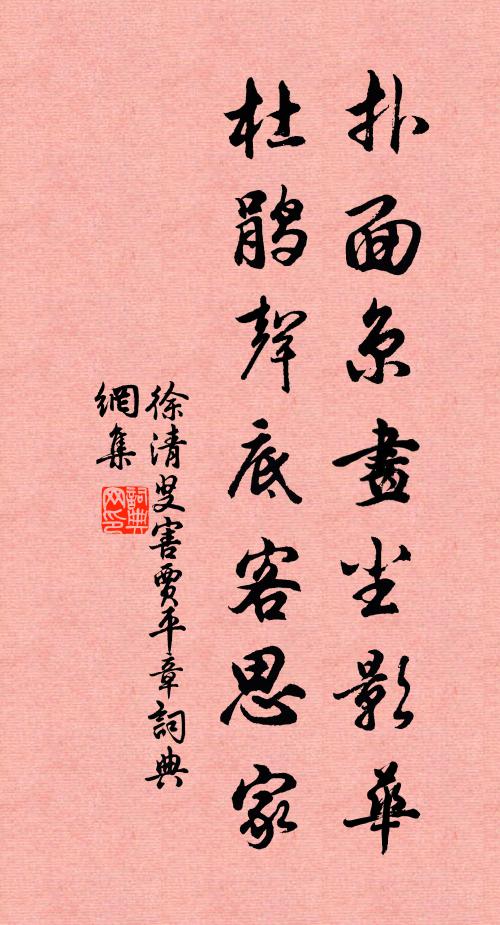 扑面京尘尽影华
杜鹃声底客思家
徐清叟害贾平章词典
网集
词典网印